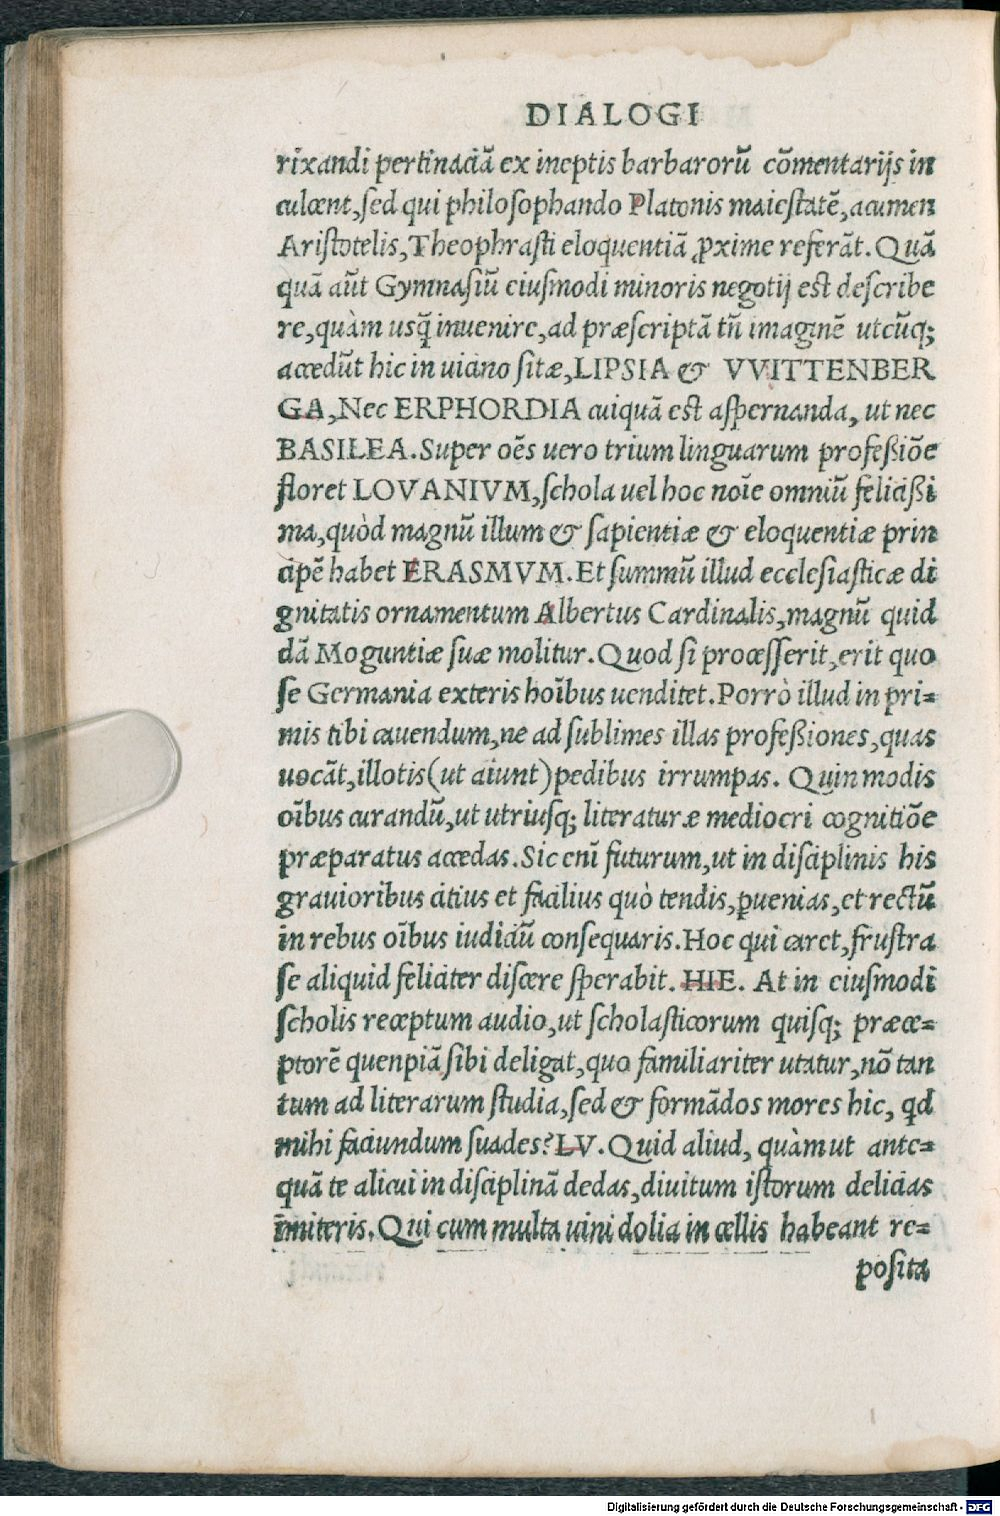 DIALOGI
rixandi pertinaciā ex ineptis barbarorū cōmentarijs in
culcent,sed qui philosophando Platonis maiestatē,acumen
Aristotelis,Theophrasti eloquentiā ꝓxime referāt.Quā
quā aūt Gymnasiū eiusmodi minoris negotij est describe
re,quàm usq̄ inuenire,ad præscriptā tñ imaginē utcūq;
accedūt hic in uicino sitæ,LIPSIA & VVITTENBER
GA,Nec ERPHORDIA cuiquā est aspernanda, ut nec
BASILEA.Super oēs uero trium linguarum profeßiōe
floret LOVANIVM,schola uel hoc noīe omniū felicißi
ma,quòd magnū illum & sapientiæ & eloquentiæ prin
cipē habet ERASMVM.Et summū illud ecclesiasticæ di
gnitatis ornamentum Albertus Cardinalis,magnū quid
dā Moguntiæ suæ molitur.Quod si processerit,erit quo
se Germania exteris hoībus uenditet.Porrò illud in pri-
mis tibi cauendum,ne ad sublimes illas profeßiones,quas
uocāt,illotis(ut aiunt)pedibus irrumpas. Quin modis
oībus curandū,ut utriusq; literaturæ mediocri cognitiōe
præparatus accedas.Sic enī futurum,ut in disciplinis his
grauioribus citius et facilius quò tendis,ꝑuenias,et rectū
in rebus oībus iudiciū consequaris.Hoc qui caret,frustra
se aliquid feliciter discere sperabit. HIE. At in eiusmodi
scholis receptum audio,ut scholasticorum quisq; præce-
ptorē quenpiā sibi deligat,quo familiariter utatur,nō tan
tum ad literarum studia,sed & formādos mores hic, qd
mihi faciundum suades?LV.Quid aliud, quàm ut ante-
quā te alicui in disciplinā dedas,diuitum istorum delicias
īmiteris.Qui cum multa uini dolia in cellis habeant re-
posita
Digitalisierung gefördert durch die Deutsche Forschungsgemeinschaft - DFG